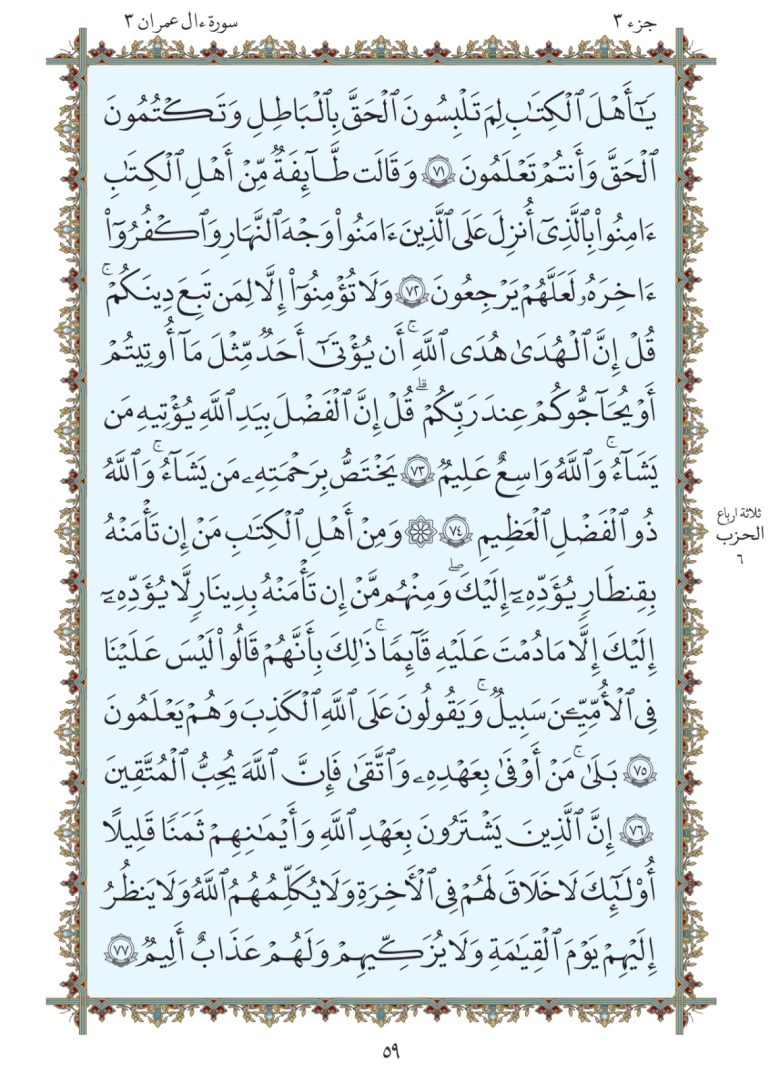 جزء ٣
سورة ءال عمران ٣
يَـٰٓأَهْلَ ٱلْكِتَـٰبِ لِمَ تَلْبِسُونَ ٱلْحَقَّ بِٱلْبَـٰطِلِ وَتَكْتُمُونَ
ٱلْحَقَّ وَأَنتُمْ تَعْلَمُونَ ٧١ وَقَالَت طَّآئِفَةٌ مِّنْ أَهْلِ ٱلْكِتَـٰبِ
ءَامِنُوا۟ بِٱلَّذِىٓ أُنزِلَ عَلَى ٱلَّذِينَ ءَامَنُوا۟ وَجْهَ ٱلنَّهَارِ وَٱكْفُرُوٓا۟
ءَاخِرَهُۥ لَعَلَّهُمْ يَرْجِعُونَ ٧٢ وَلَا تُؤْمِنُوٓا۟ إِلَّا لِمَن تَبِعَ دِينَكُمْ ۚ
قُلْ إِنَّ ٱلْهُدَىٰ هُدَى ٱللَّهِ ۚ أَن يُؤْتَىٰٓ أَحَدٌ مِّثْلَ مَآ أُوتِيتُمْ
أَوْ يُحَآجُّوكُمْ عِندَ رَبِّكُمْ ۗ قُلْ إِنَّ ٱلْفَضْلَ بِيَدِ ٱللَّهِ يُؤْتِيهِ مَن
يَشَآءُ ۚ وَٱللَّهُ وَٰسِعٌ عَلِيمٌ ٧٣ يَخْتَصُّ بِرَحْمَتِهِۦ مَن يَشَآءُ ۚ وَٱللَّهُ
ذُو ٱلْفَضْلِ ٱلْعَظِيمِ ٧٤ ۞ وَمِنْ أَهْلِ ٱلْكِتَـٰبِ مَنْ إِن تَأْمَنْهُ
بِقِنطَارٍ يُؤَدِّهِۦٓ إِلَيْكَ ۖ وَمِنْهُم مَّنْ إِن تَأْمَنْهُ بِدِينَارٍ لَّا يُؤَدِّهِۦٓ
إِلَيْكَ إِلَّا مَا دُمْتَ عَلَيْهِ قَآئِمًا ۚ ذَٰلِكَ بِأَنَّهُمْ قَالُوا۟ لَيْسَ عَلَيْنَا
فِى ٱلْأُمِّيِّـۧنَ سَبِيلٌ ۚ وَيَقُولُونَ عَلَى ٱللَّهِ ٱلْكَذِبَ وَهُمْ يَعْلَمُونَ
٧٥ بَلَىٰ ۚ مَنْ أَوْفَىٰ بِعَهْدِهِۦ وَٱتَّقَىٰ فَإِنَّ ٱللَّهَ يُحِبُّ ٱلْمُتَّقِينَ
٧٦ إِنَّ ٱلَّذِينَ يَشْتَرُونَ بِعَهْدِ ٱللَّهِ وَأَيْمَـٰنِهِمْ ثَمَنًا قَلِيلًا
أُو۟لَـٰٓئِكَ لَا خَلَـٰقَ لَهُمْ فِى ٱلْـَٔاخِرَةِ وَلَا يُكَلِّمُهُمُ ٱللَّهُ وَلَا يَنظُرُ
إِلَيْهِمْ يَوْمَ ٱلْقِيَـٰمَةِ وَلَا يُزَكِّيهِمْ وَلَهُمْ عَذَابٌ أَلِيمٌ ٧٧
ثلاثة ارباع
الحزب
٦
٥٩